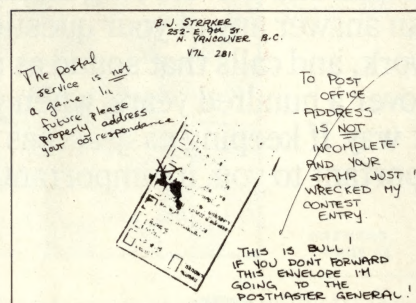 B.J. STRAKER
252-E. 9th ST.
N. VANCOUVER B.C.
V7L 2B1.
The Postal
service is not
a game. In
future please
properly address
your correspondence
TO POST
OFFICE
- ADDRESS
IS NOT
INCOMPLETE.
AND YOUR
STAMP JUST
WRECKED MY
CONTEST
ENTRY.
THIS IS BULL!
IF YOU DON'T FORWARD
THIS ENVELOPE I'M
GOING TO THE
POSTMASTER GENERAL!